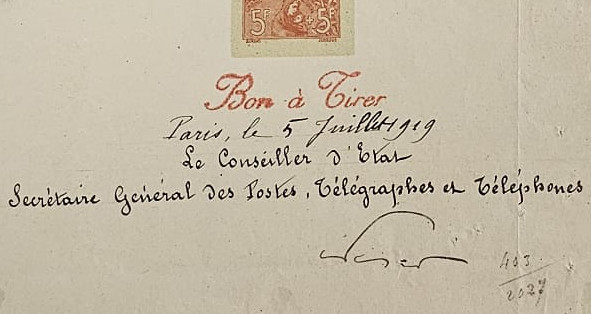 5F +5F
Bon à Tirer
Paris, le 5 Juillet 1919
Le Conseiller d'Etat
Secrétaire Général des Postes, Télégraphes et Téléphones
403
2027